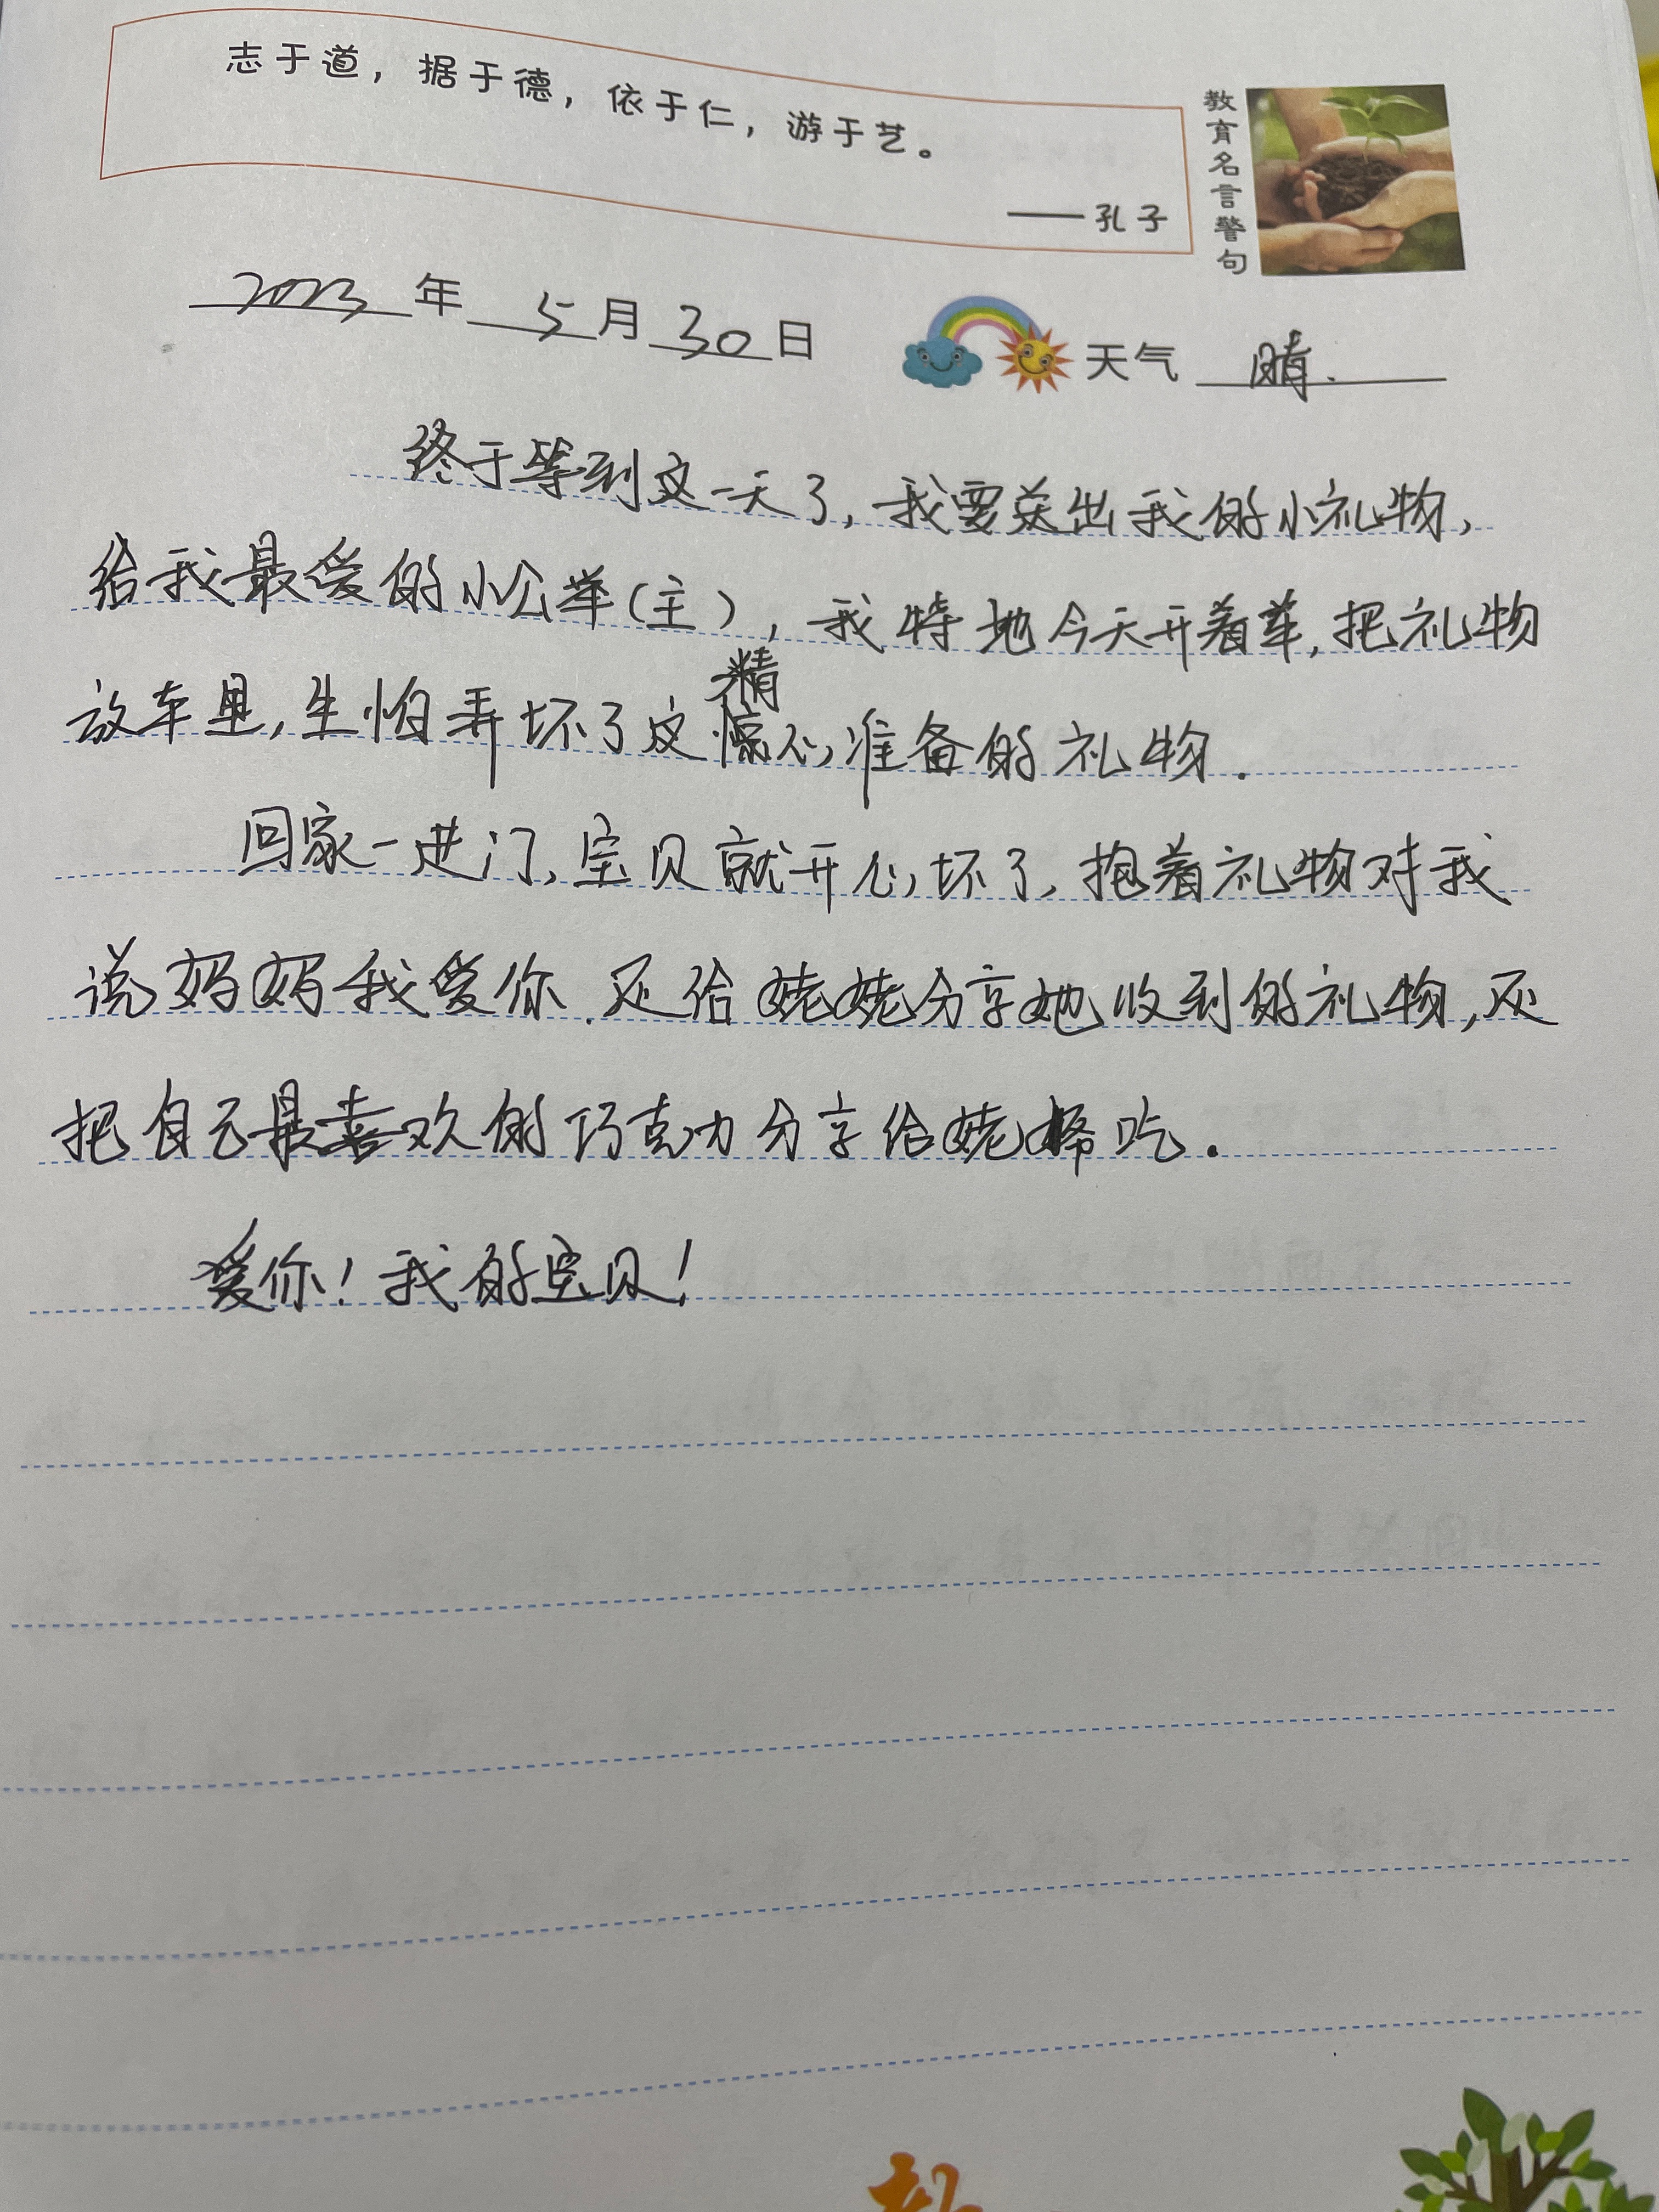 志于道，据于德，依于仁，游于艺。
——孔子
教育名言警句
2023年 5月30日 天气 晴.
终于等到这一天了，我要送出我的小礼物，
给我最爱的小公举(主)，我特地今天开着车，把礼物
放车里，生怕弄坏了这惊精心准备的礼物.
回家一进门、宝贝就开心坏了，抱着礼物对我
说妈妈我爱你.还给姥姥分享她收到的礼物，还
把自己最喜欢的巧克力分享给姥姥吃.
爱你！我的宝贝！